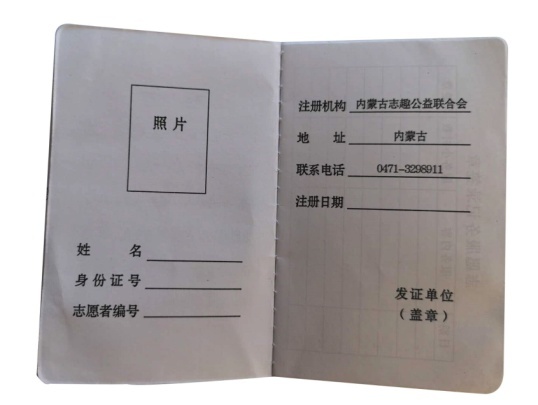 照片
姓 名
身份证号
志愿者编号
注册机构 内蒙古志趣公益联合会
地 址 内蒙古
联系电话 0471-3298911
注册日期
发证单位
（盖章）